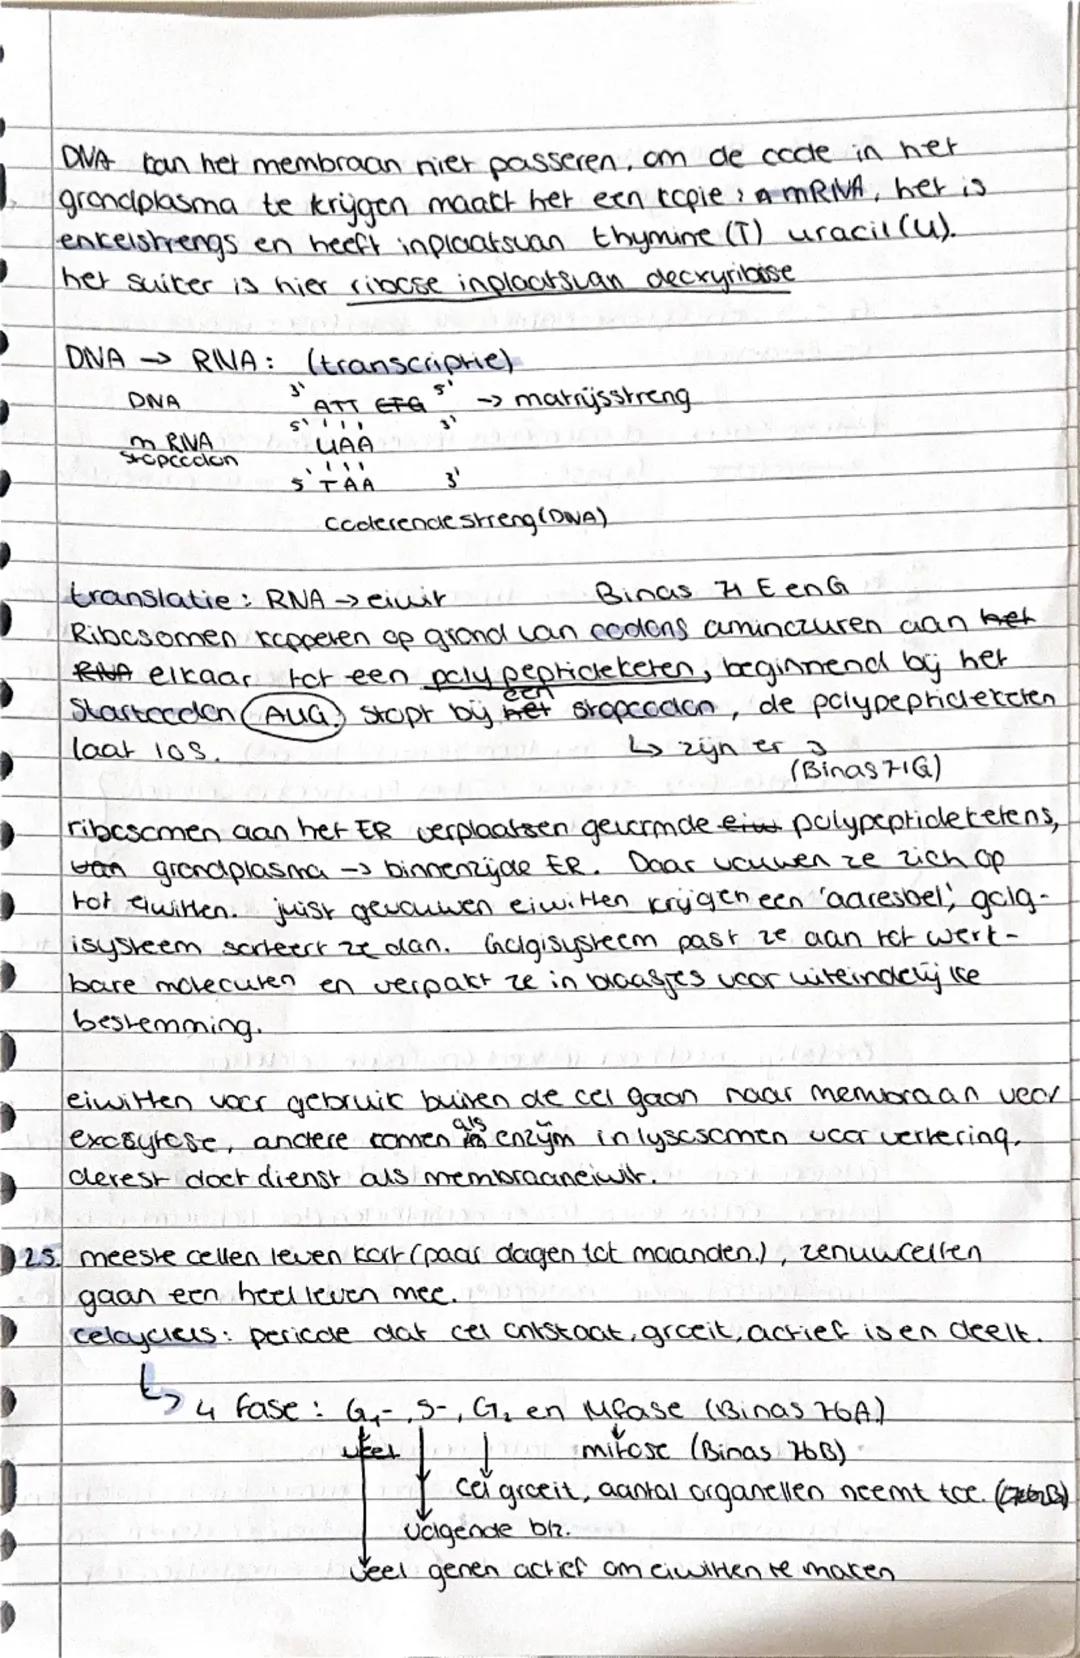 DNA kan het membraan niet passeren, om de code in het
grondplasma te krijgen maakt het een kopie: mRNA, het is
enkelstrengs en heeft inplaatsvan thymine (T) uracil (U).
het suiker is hier ribose inplaatsvan deoxyribose
DNA → RNA: (transcriptie)
DNA 3' ATT CTG 5' → matrijsstreng
5' 3'
mRNA UAA
stopcodon
5' TAA 3'
coderende streng (DNA)
translatie: RNA → eiwit Binas 71 E en G
Ribosomen koppelen op grond van codons aminozuren aan het
RNA elkaar tot een polypeptideketen, beginnend bij het
startcodon (AUG) stopt bij het een stopcodon, de polypeptideketen
laat los. ↳ zijn er 3
(Binas 71G)
ribosomen aan het ER verplaatsen gevormde eiw polypeptideketens,
van grondplasma → binnenzijde ER. Daar vouwen ze zich op
tot eiwitten. juist gevouwen eiwitten krijgen een 'adreslabel', golg-
isysteem sorteert ze dan. Golgisysteem past ze aan tot werk-
bare moleculen en verpakt ze in blaasjes voor uiteindelijke
bestemming.
eiwitten voor gebruik buiten de cel gaan naar membraan voor
exocytose, andere komen als enzym in lysosomen voor vertering,
derest doet dienst als membraaneiwit.
25. meeste cellen leven kort (paar dagen tot maanden.), zenuwcellen
gaan een heel leven mee.
celcyclus: periode dat cel ontstaat, groeit, actief is en deelt.
↳ 4 fase: G₁-, S-, G₂ en Mfase (Binas 76A)
veel mitose (Binas 76B)
cel groeit, aantal organellen neemt toe.
volgende blz.
veel genen actief om eiwitten te maken